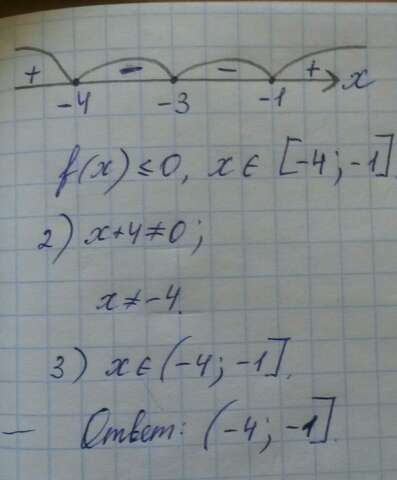 + - - + x
-4 -3 -1
f(x) ≤ 0, x ∈ [-4; -1]
2) x+4≠0;
x≠-4.
3) x ∈ (-4; -1].
— Ответ: (-4; -1].